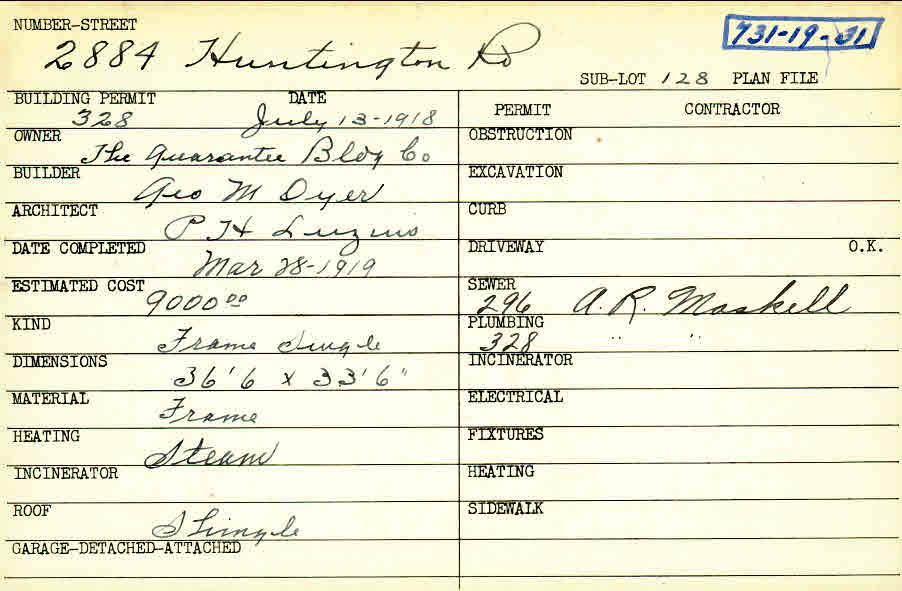 NUMBER-STREET
2884 Huntington Rd
731-19-31
SUB-LOT 128 PLAN FILE
BUILDING PERMIT DATE
328 July 13-1918
OWNER
The Guarantee Bldg Co
BUILDER
Geo M Dyer
ARCHITECT
P H
DATE COMPLETED
Mar 28-1919
ESTIMATED COST
9000 00
KIND
Frame Single
DIMENSIONS
36'6 x 33'6"
MATERIAL
Frame
HEATING
Steam
INCINERATOR
ROOF
Shingle
GARAGE-DETACHED-ATTACHED
PERMIT CONTRACTOR
OBSTRUCTION
EXCAVATION
CURB
DRIVEWAY O.K.
SEWER
296 A. R. Maskell
PLUMBING
328 " "
INCINERATOR
ELECTRICAL
FIXTURES
HEATING
SIDEWALK